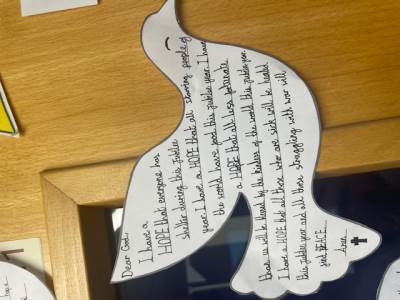 Dear God,
I have a
HOPE that everyone has
shelter during this Jubilee
year. I have a HOPE that all starving people of
the world have food this jubilee year. I have
a HOPE that all less fortunate
than us will be heard by the leaders of the world this jubilee year.
I have a HOPE that all those who are sick will be healed
this jubilee year and all those struggling with war will
find PEACE.
Love,